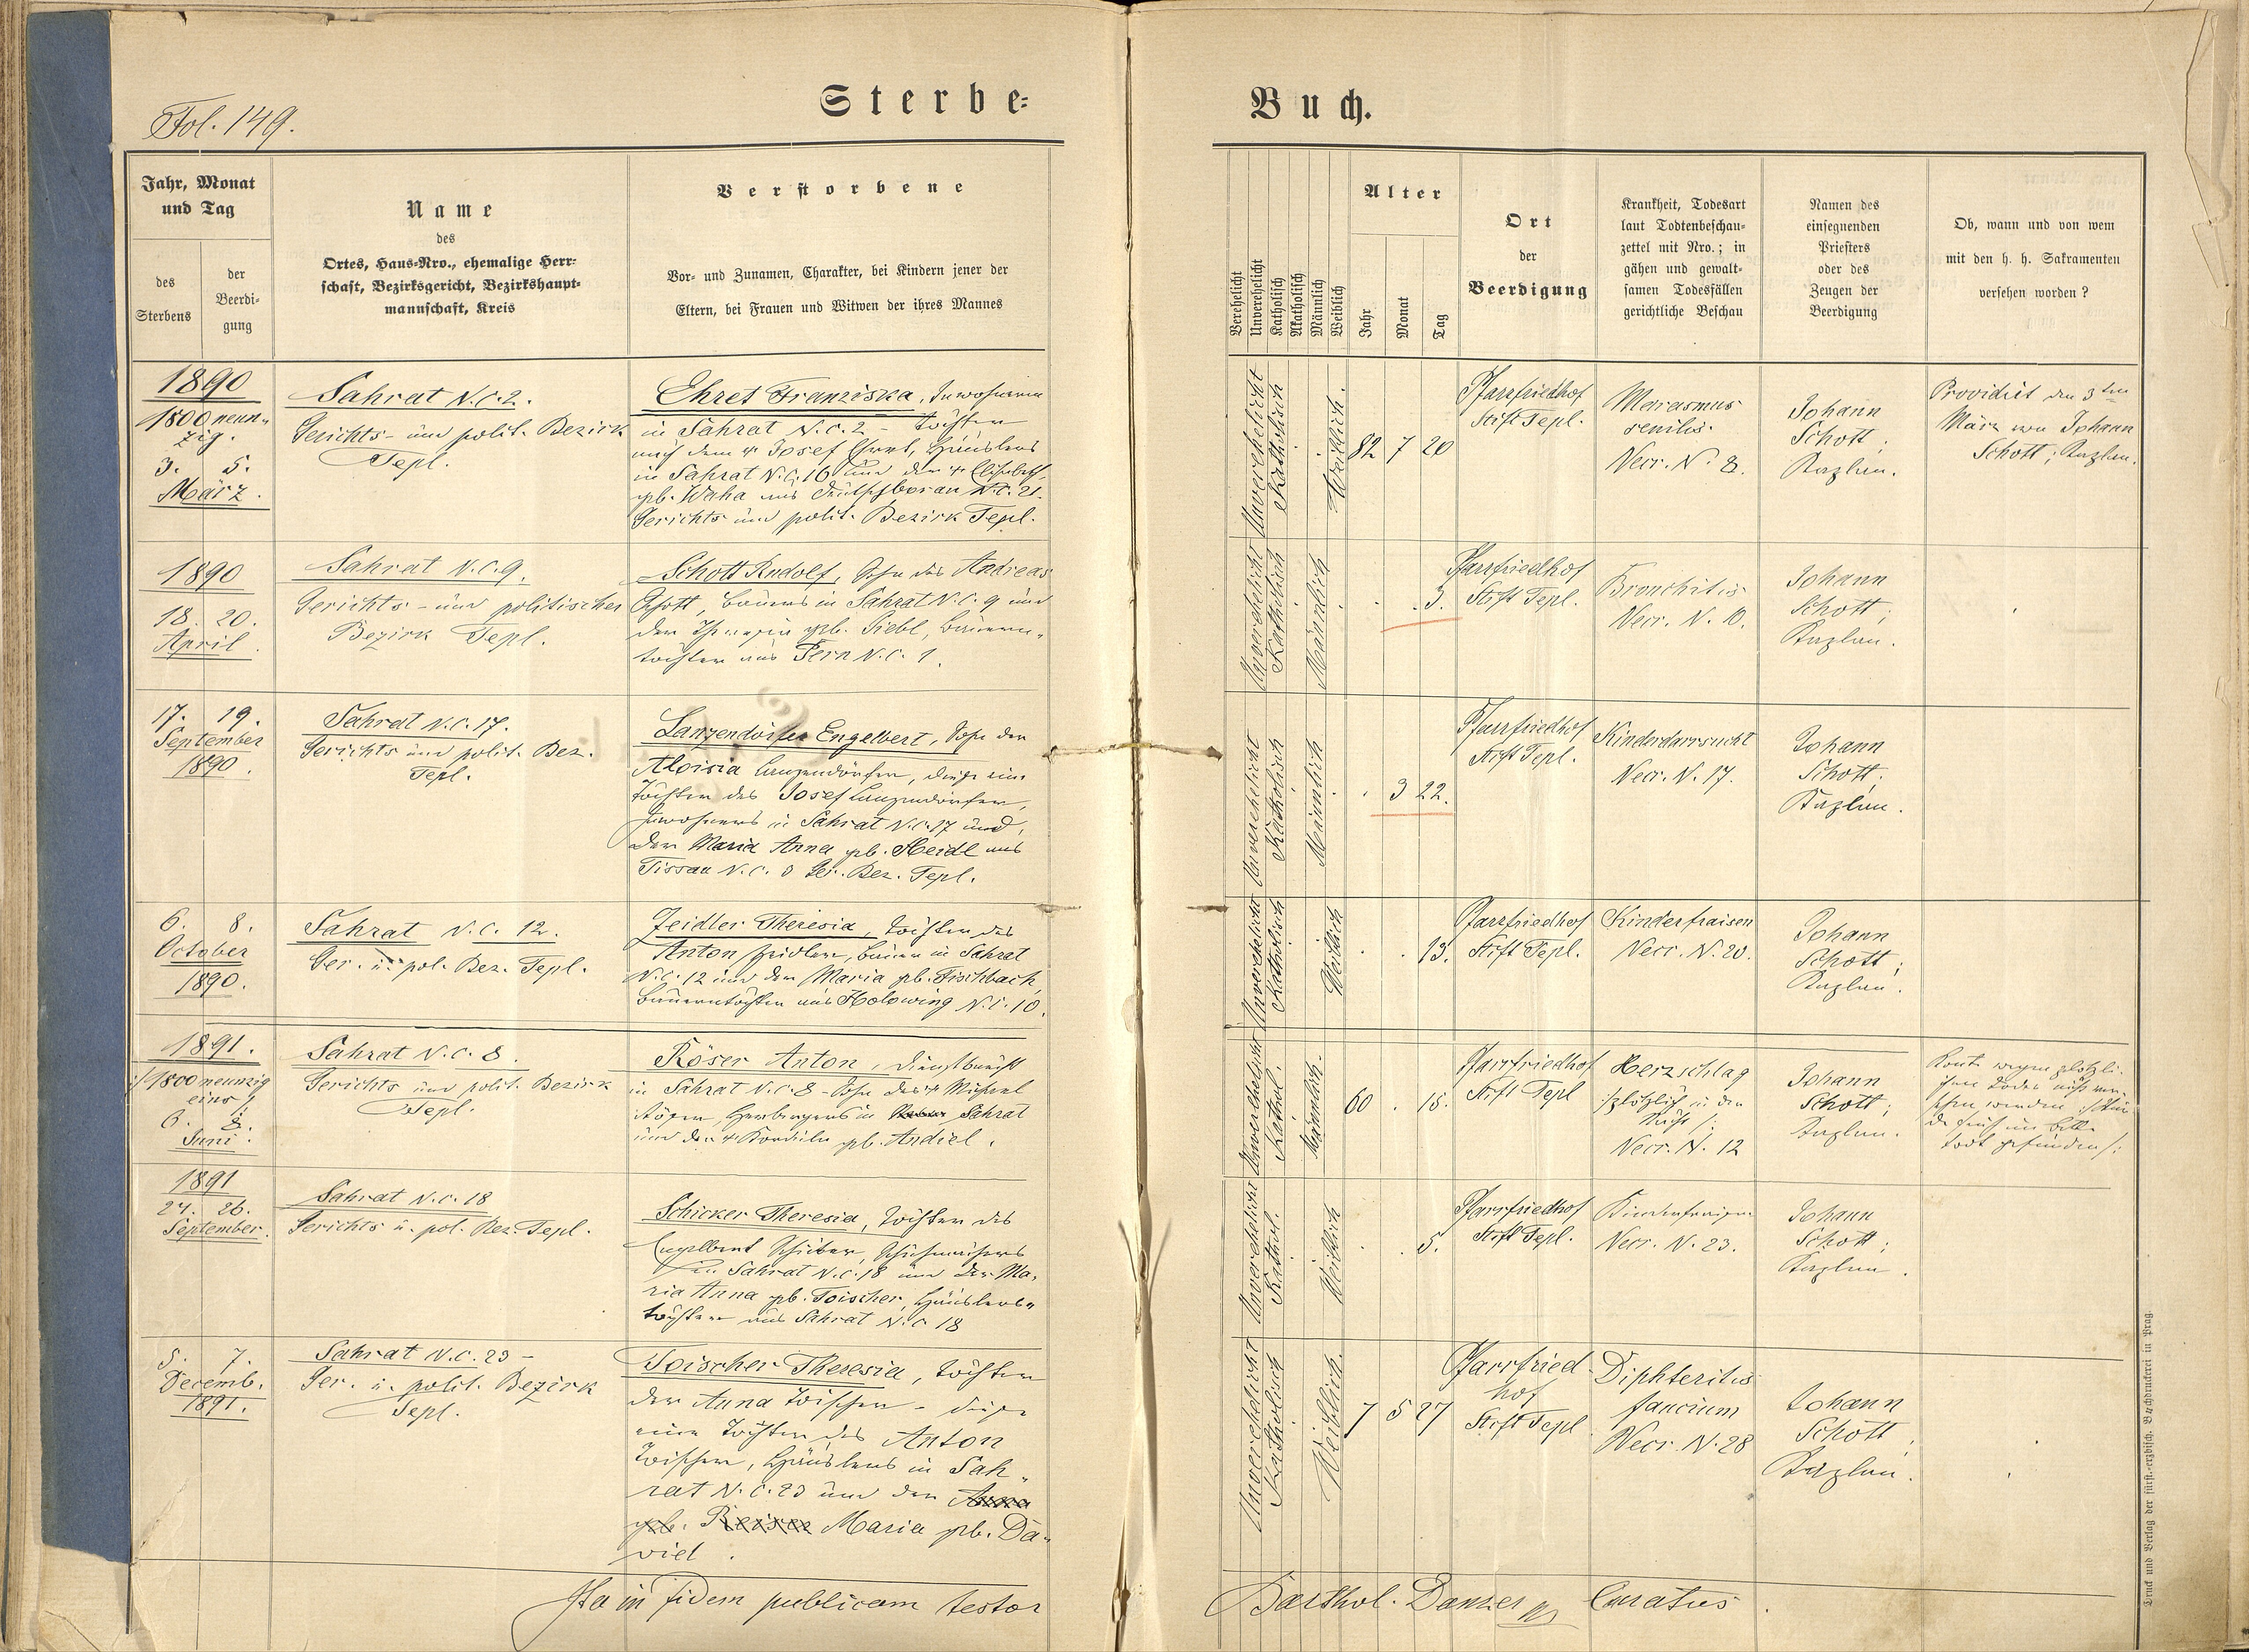 Fol. 149.
Sterbe-
Buch.
Jahr, Monat
und Tag
des
Sterbens
der
Beerdi-
gung
Name
des
Ortes, Haus-Nro., ehemalige Herr-
schaft, Bezirksgericht, Bezirkshaupt-
mannschaft, Kreis
Verstorbene
Vor- und Zunamen, Charakter, bei Kindern jener der
Eltern, bei Frauen und Witwen der ihres Mannes
Verehelicht
Unverehelicht
Katholisch
Akatholisch
Männlich
Weiblich
Alter
Jahr
Monat
Tag
Ort
der
Beerdigung
Krankheit, Todesart
laut Todtenbeschau-
zettel mit Nro.; in
gähen und gewalt-
samen Todesfällen
gerichtliche Beschau
Namen des
einsegnenden
Priesters
oder des
Zeugen der
Beerdigung
Ob, wann und von wem
mit den h. h. Sakramenten
versehen worden?
1890
1800 neun-
zig.
3. 5.
März.
Sahrat N.C. 2.
Gerichts- und polit. Bezirk
Tepl.
Ehret Franziska, Inwohnerin
in Sahrat N.C. 2 - Tochter
nach dem † Josef Ehret, Häuslers
in Sahrat N.C. 16 und der † Elisabeth
geb. Waha aus Deutschborau N.C. 21.
Gerichts und polit. Bezirk Tepl.
Unverehelicht
Katholisch
Weiblich.
82 7 20
Pfarrfriedhof
Stift Tepl.
Marasmus
senilis.
Necr. N. 8.
Johann
Schott;
Kaplan.
Providirt den 3ten
März von Johann
Schott; Kaplan.
1890
18. 20.
April.
Sahrat N.C. 9.
Gerichts- und politischer
Bezirk Tepl.
Schott Rudolf, Sohn des Andreas
Schott, Bauers in Sahrat N.C. 9 und
der Theresia geb. Siebl, Bauern-
tochter aus Pern N.C. 1.
Unverehelicht
Katholisch
Männlich
. . 3.
Pfarrfriedhof
Stift Tepl.
Bronchitis
Necr. N. 10.
Johann
Schott;
Kaplan.
17. 19.
September
1890.
Sahrat N.C. 17.
Gerichts und polit. Bez.
Tepl.
Langendörfer Engelbert, Sohn der
Aloisia Langendörfer, diese eine
Tochter des Josef Langendörfer,
Inwohners in Sahrat N.C. 17 und
der Maria Anna geb. Heidl aus
Tissau N.C. 8 Ger. Bez. Tepl.
Unverehelicht
Katholisch
Männlich
. 3 22.
Pfarrfriedhof
Stift Tepl.
Kinderdarrsucht
Necr. N. 17.
Johann
Schott.
Kaplan.
6. 8.
October
1890.
Sahrat N.C. 12.
Ger. u. pol. Bez. Tepl.
Zeidler Theresia, Tochter des
Anton Zeidler, Bauer in Sahrat
N.C. 12 und der Maria geb. Fischbach,
Bauerntochter aus Holowing N.C. 10.
Unverehelicht
Katholisch
Weiblich
. . 13.
Pfarrfriedhof
Stift Tepl.
Kinderfraisen
Necr. N. 20.
Johann
Schott;
Kaplan.
1891.
:/1800 neunzig
eins/:
6. 8.
Juni.
Sahrat N.C. 8.
Gerichts und polit. Bezirk
Tepl.
Röser Anton, Dienstknecht
in Sahrat N.C. 8 - Sohn des † Michael
Röser Herbergers in Sahrat
und der † Kordula geb. Andirl.
Unverehelicht
Kathol.
Männlich.
60 . 15.
Pfarrfriedhof
Stift Tepl
Herzschlag
:/plötzlich in der
Nacht/:
Necr. N. 12
Johann
Schott;
Kaplan.
Konte wegen plötzli-
chen Todes nicht ver-
sehen werden :/Wur-
de früh im Bette
todt gefunden/:
1891
24. 26.
September.
Sahrat N.C. 18
Gerichts u. pol. Bez. Tepl.
Schicker Theresia, Tochter des
Engelbert Schicker, Schuhmachers
in Sahrat N.C. 18 und der Ma-
ria Anna geb. Toischer, Häuslers-
tochter aus Sahrat N.C. 18
Unverehelicht
Kathol.
Weiblich
. . 5.
Pfarrfriedhof
Stift Tepl.
Kinderfraisen
Necr. N. 23.
Johann
Schott;
Kaplan.
5. 7.
Decemb.
1891.
Sahrat N.C. 23 -
Ger. u. polit. Bezirk
Tepl.
Toischer Theresia, Tochter
der Anna Toischer - diese
eine Tochter des Anton
Toischer, Häuslers in Sah-
rat N.C. 23 und der Anna
geb. Reiser Maria geb. Da-
viel.
Unverehelicht
Katholisch
Weiblich.
7 5 27
Pfarrfried-
hof
Stift Tepl
Diphteritis
faucium
Necr. N. 28
Johann
Schott,
Kaplan.
Ita in fidem publicam testor
Barthol. Danzer Curatus.
Druck und Verlag der fürst.-erzbisch. Buchdruckerei in Prag.